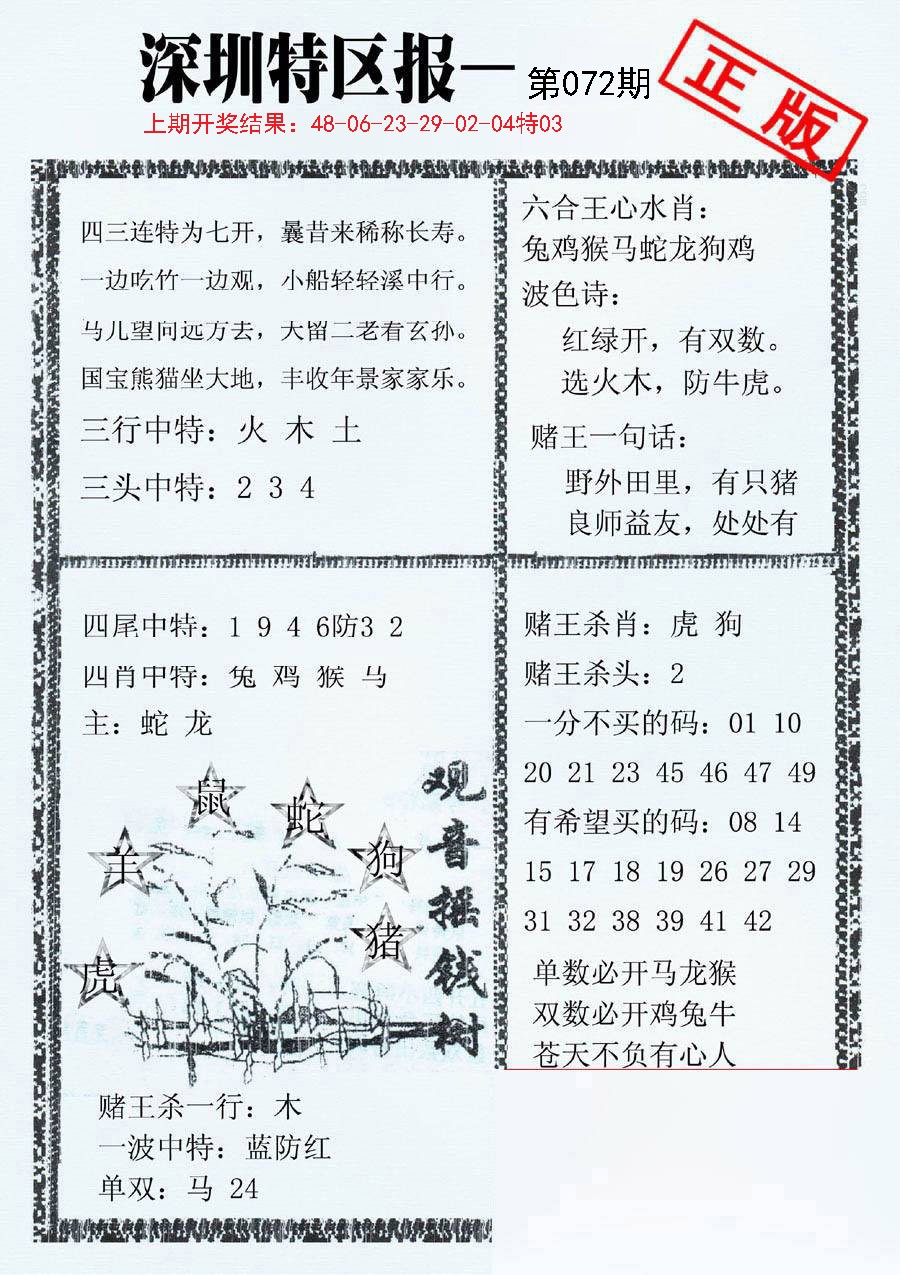 深圳特区报一 第072期
正版
上期开奖结果：48-06-23-29-02-04特03
四三连特为七开，曩昔来稀称长寿。
一边吃竹一边观，小船轻轻溪中行。
马儿望向远方去，大留二老看玄孙。
国宝熊猫坐大地，丰收年景家家乐。
三行中特：火 木 土
三头中特：2 3 4
六合王心水肖：
兔鸡猴马蛇龙狗鸡
波色诗：
红绿开，有双数。
选火木，防牛虎。
赌王一句话：
野外田里，有只猪
良师益友，处处有
四尾中特：1 9 4 6防3 2
四肖中特：兔 鸡 猴 马
主：蛇 龙
鼠
蛇
羊
狗
猪
虎
观音摇钱树
赌王杀一行：木
一波中特：蓝防红
单双：马 24
赌王杀肖：虎 狗
赌王杀头：2
一分不买的码：01 10
20 21 23 45 46 47 49
有希望买的码：08 14
15 17 18 19 26 27 29
31 32 38 39 41 42
单数必开马龙猴
双数必开鸡兔牛
苍天不负有心人